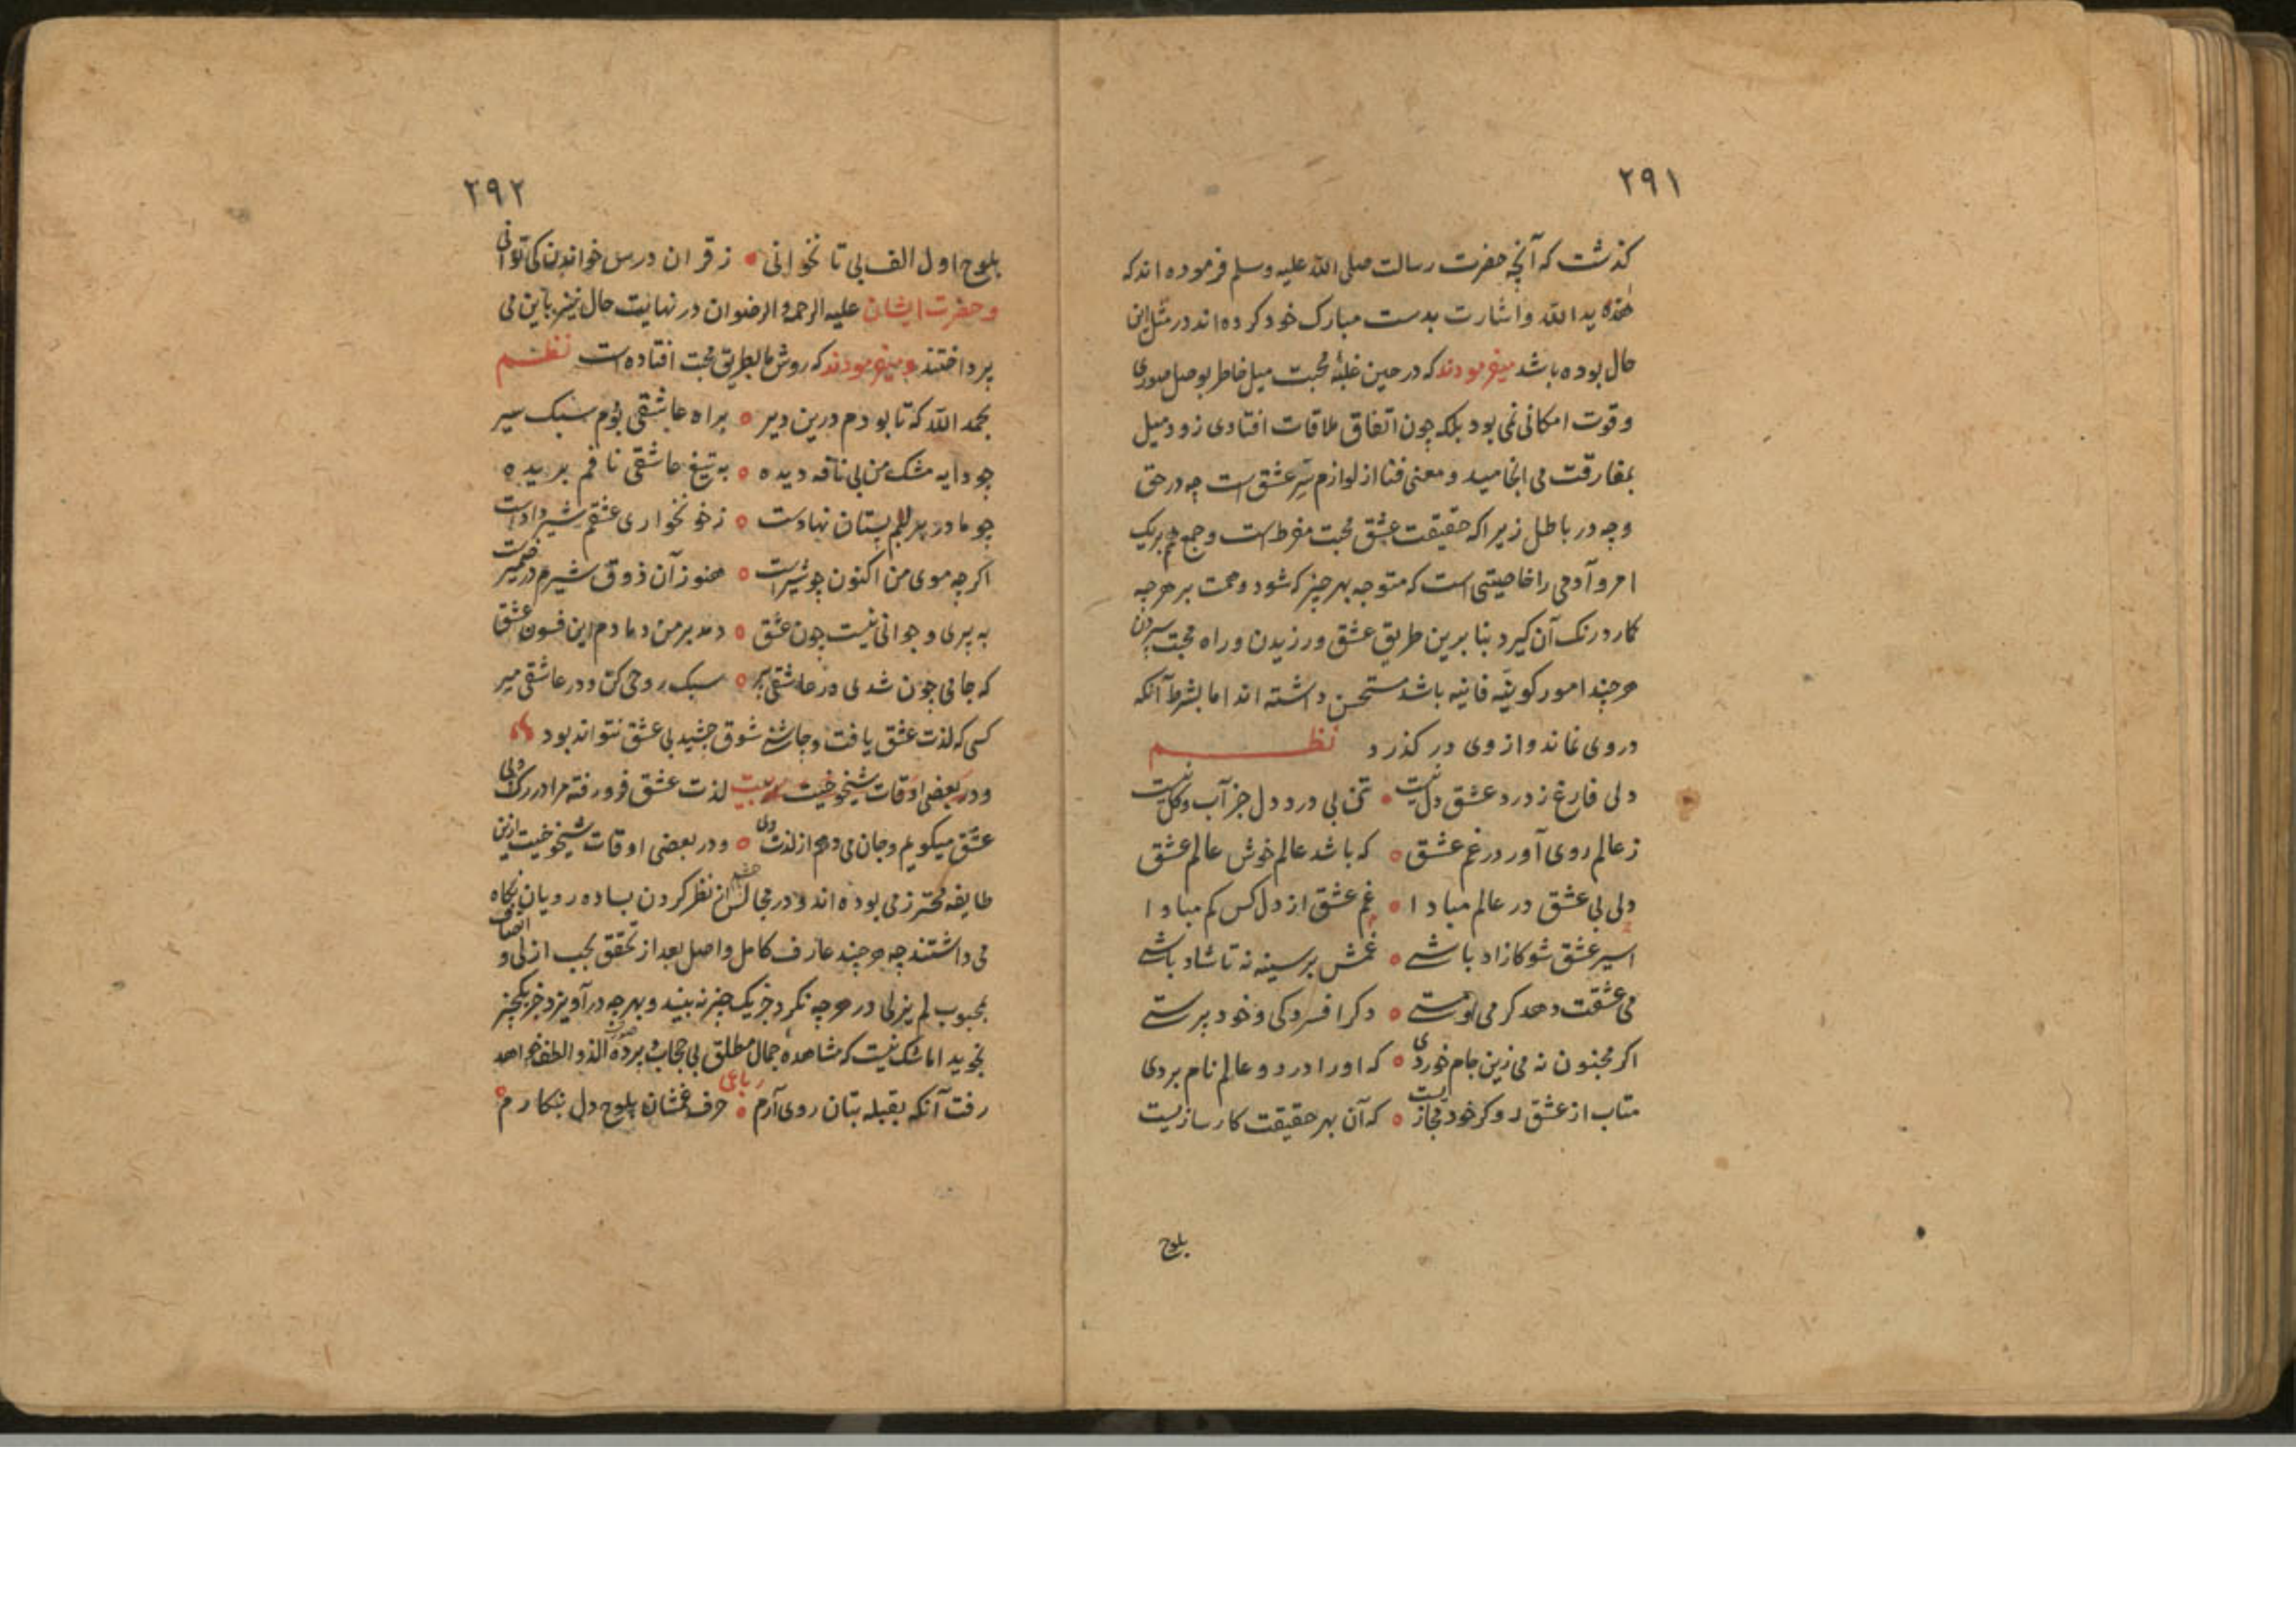 ۲۹۱
کذشت که آنچه حضرت رسالت صلی الله علیه وسلم فرموده اند که
هذه ید الله واشارت بدست مبارک خود کرده اند در مثل این
حال بوده باشد میفرمودند که در حین غلبهٔ محبت میل خاطر بوصل صوری
وقوت امکانی نمی بود بلکه چون اتفاق ملاقات افتادی زود میل
بمفارقت می انجامید و معنی فنا از لوازم سر عشق است چه در حق
وچه در باطل زیرا که حقیقت عشق محبت مفرط است و جمع هم بریک
امر و آدمی را خاصیتی است که متوجه بهر چیز که شود وهمت بر هرچه
کمارد رنک آن کیرد بنا برین طریق عشق ورزیدن و راه محبت سپردن
هرچند امور کونیه فانیه باشد مستحسن داشته اند اما بشرط آنکه
دروی نماند و از وی در کذرد نظم
دلی فارغ ز درد عشق دل نیست • تن بی درد دل جز آب و کل نیست
ز عالم روی آور در غم عشق • که باشد عالم خوش عالم عشق
دلی بی عشق در عالم مبادا • غم عشق از دل کس کم مبادا
اسیر عشق شو کازاد باشی • غمش بر سینه نه تا شاد باشی
می عشقت دهد کرمی و مستی • دکر افسردکی و خود پرستی
اکر مجنون نه می زین جام خوردی • که او را در دو عالم نام بردی
متاب از عشق رو کرخود مجازیست • که آن بهر حقیقت کارسازیست
بلوح
۲۹۲
بلوح اول الف بی تا نخوانی • ز قران درس خواندن کی توانی
و حضرت ایشان علیه الرحمه والرضوان در نهایت حال نیز باین می
پرداختند و میفرمودند که روش ما بطریق محبت افتاده است نظم
بحمد الله که تا بودم درین دیر • براه عاشقی بودم سبک سیر
چو دایه مشک من بی نافه دیده • به تیغ عاشقی نافم بریده
چو مادر بر لبم پستان نهادست • ز خونخواری عشقم شیر دادست
اکرچه موی من اکنون چو شیرست • هنوز آن ذوق شیرم در ضمیرست
به پیری و جوانی نیست چون عشق • دمد بر من دمادم این فسون عشق
که جامی چون شدی در عاشقی پیر • سبک روحی کن و در عاشقی میر
کسی که لذت عشق یافت و چاشنی شوق چشید بی عشق نتواند بود
ودر بعضی اوقات شیخوخیت بیت لذت عشق فرو رفته مرا در رک و پی
عشق میکویم و جان می دهم از لذت وی • ودر بعضی اوقات شیخوخیت ازین
طایفه محترز می بوده اند و در مجالس از نظر کردن بساده رویان نکاه
می داشتند چه هرچند عارف کامل واصل بعد از تحقق بحب ازلی و اتصاف
بمحبوب لم یزلی در هرچه نکرد جز یک چیز نه بیند و بهرچه درآویزد جز یکچیز
نجوید اما شک نیست که مشاهده جمال مطلق بی حجاب و پرده صور الذ و الطف خواهد
رباعی
رفت آنکه بقبله بتان روی آرم • حرف غمشان بلوح دل بنکارم